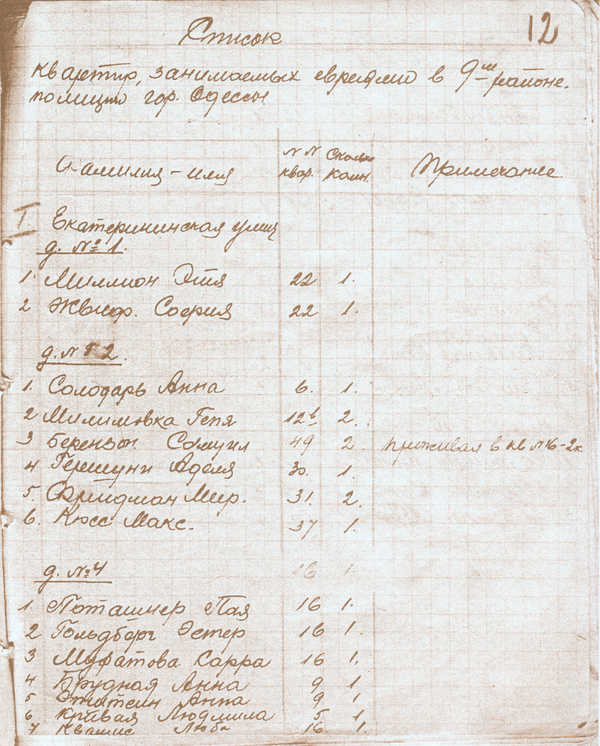 12
Список
квартир, занимаемых евреями в 9-м районе
полиции гор. Одессы
Фамилия-имя N N квар. Сколько комн. Примечание
I Екатерининская улица
д. № 1.
1. Миллион Этя 22 1.
2 София 22 1.
д. № 2.
1. Солодарь Анна 6. 1.
2 Геня 12 2.
3 Самуил 49 2 проживал в кв №16-2к
4 Гершуни Аделя 30. 1.
5. Фридман Мир. 31. 2.
6. Кюсс Макс. 37 1.
д. №4 16 1.
1 Поташнер Пая 16 1.
2 Гольдборг Эстер 16 1.
3 Муратова Сарра 16 1.
4 Брудная Анна 9 1
5 Анна 9 1
6 Кривая Людмила 5 1
7 Люба 16 1.